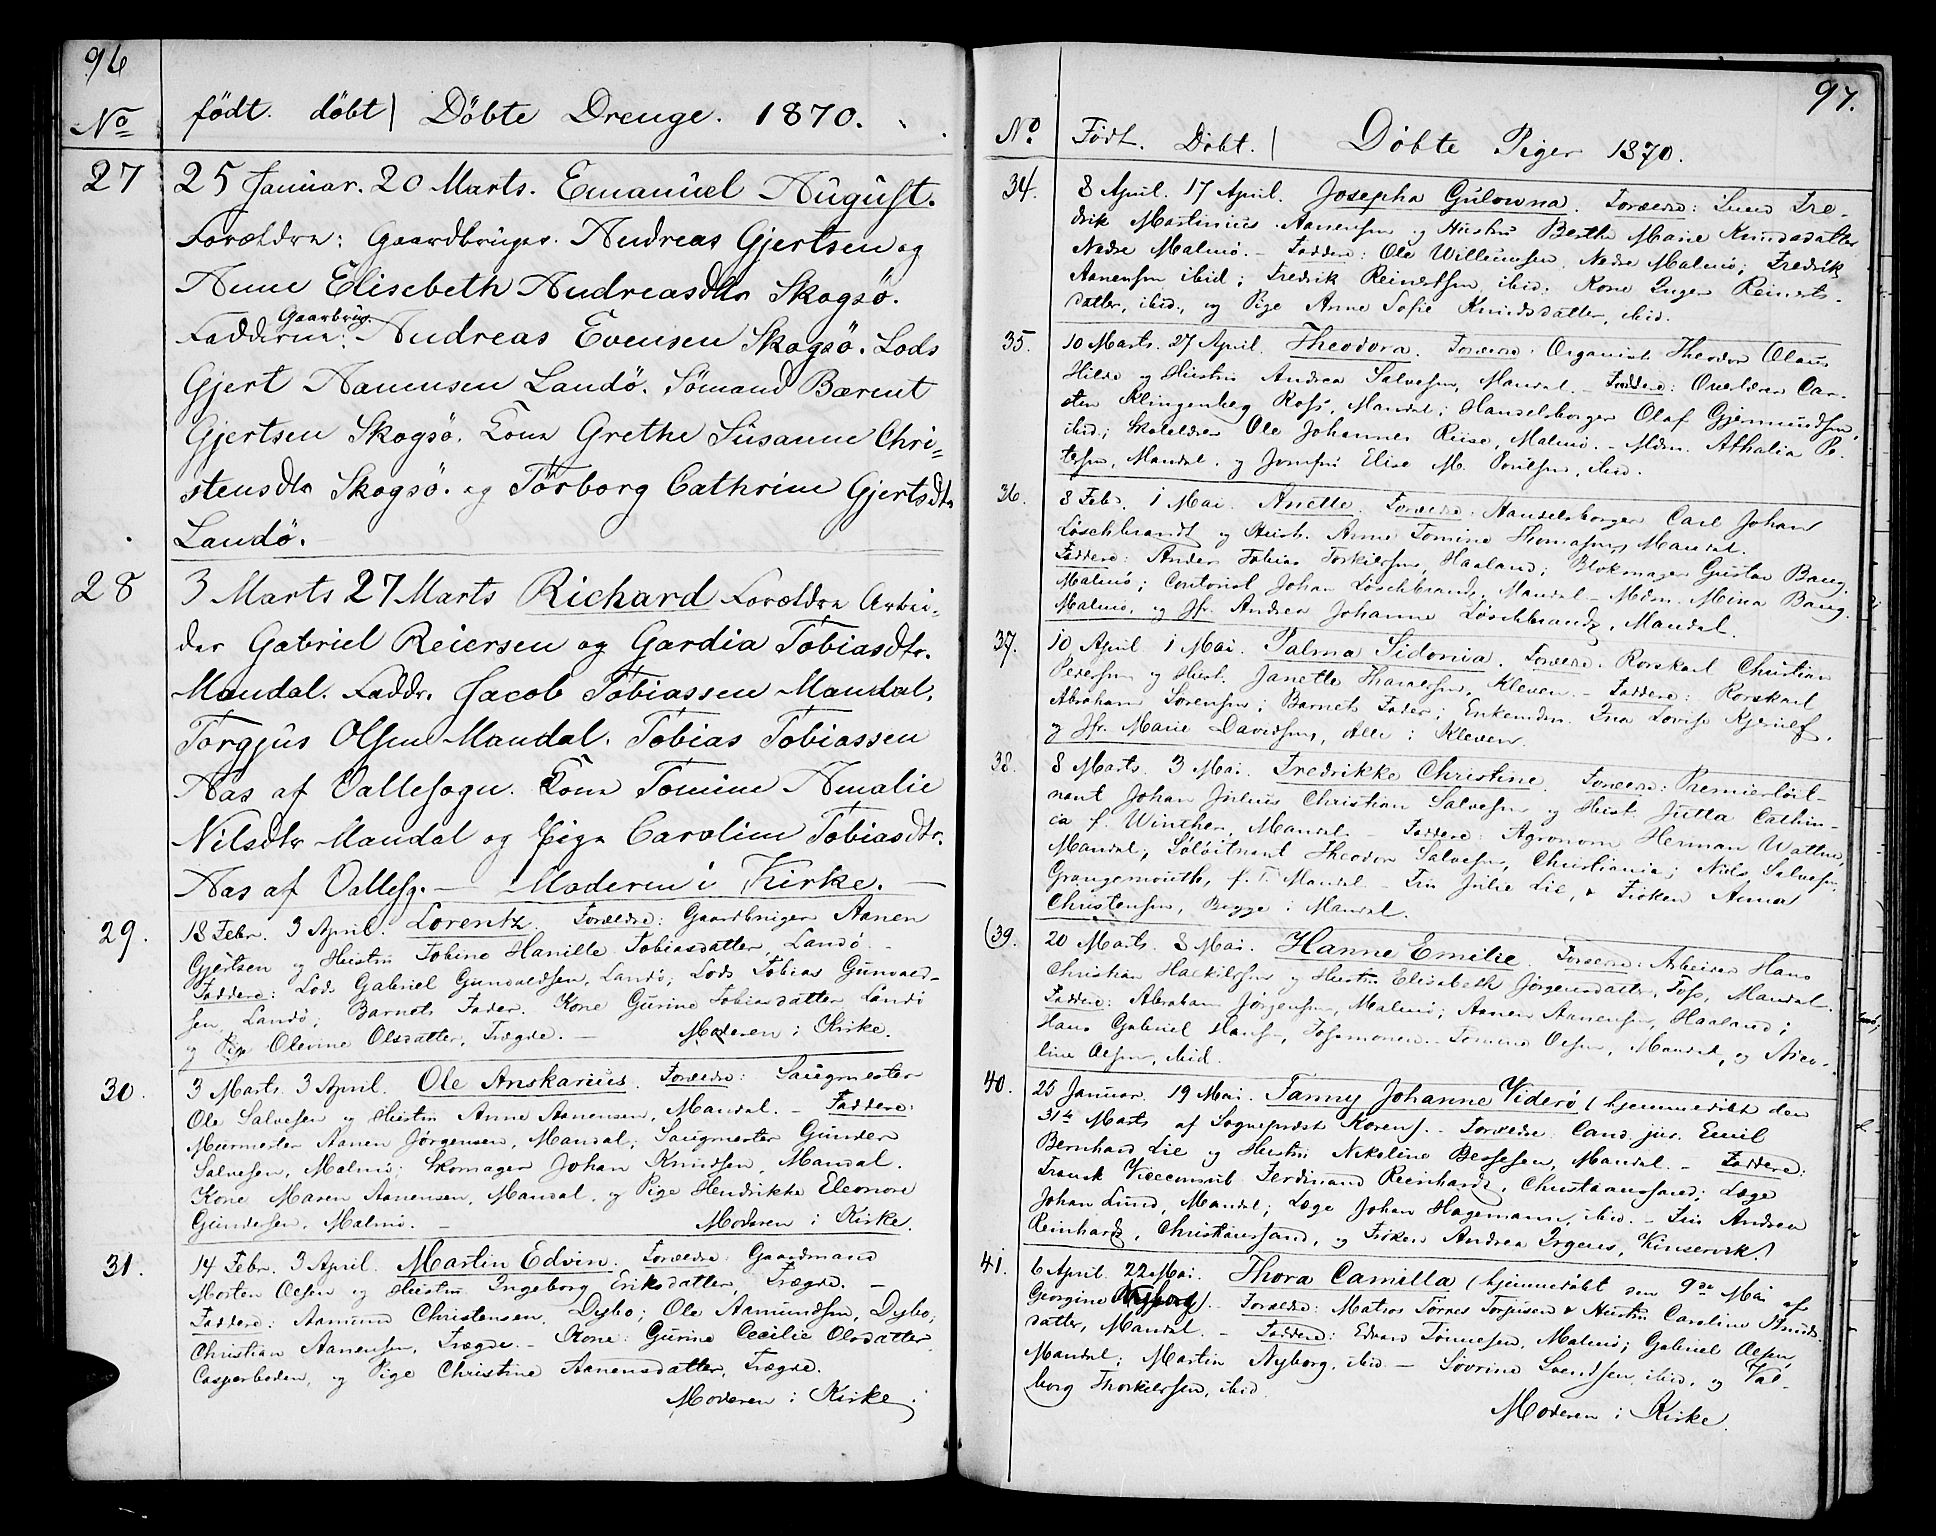 96
No født. døbt | Døbte Drenge. 1870.
27 25 Januar. 20 Marts. Emanuel August.
Forældre: Gaardbruger. Andreas Gjertsen og
Anne Elisebeth Andreasdtr Skogsö.
Gaarbrug.
Fadderne: Andreas Evensen Skogsö. Lods
Gjert Aanensen Landö. Sömand Bærent
Gjertsen Skogsö. Kona Grethe Susanne Chri=
stensdtr Skogsö. og Törborg Cathrine Gjertsdtr
Landö.
28 3 Marts 27 Marts Richard Forældre Arbei=
der Gabriel Reiersen og Gardia Tobiasdtr.
Mandal. Faddr. Jacob Tobiassen Mandal.
Torgjus Olsen Mandal. Tobias Tobiassen
Aas af Vallesogn. Kona Tomine Amalie
Nilsdtr Mandal og Pige Caroline Tobiasdtr.
Aas af Vallesg. — Moderen i Kirke. —
29. 18 Febr. 3 April. Lorentz. Forældre: Gaardbruger Aanen
Gjertsen og Hustru Tobine Hanille Tobiasdatter, Landö. —
Faddere: Lods Gabriel Gunvaldsen, Landö; Lods Tobias Gunvald-
sen, Landö; Barnets Fader. Kone Gurine Tobiasdatter Landö
og Pige Olevine Olsdatter, Trægde. — Moderen i Kirke.
30. 3 Marts. 3 April. Ole Anskarius. Forældre: Saugmester
Ole Salvesen og Hustru Anne Aanensen, Mandal. — Faddere:
Murmester Aanen Jørgensen, Mandal; Saugmester Gunder
Salvesen, Malmö; Skomager Johan Knudsen, Mandal.
Kone Maren Aanensen, Mandal, og Pige Hendrikke Eleonore
Gundersen, Malmö. — Moderen i Kirke.
31. 14 Febr. 3 April. Martin Edvin. Forældre: Gaardmand
Morten Olsen og Hustru Ingeborg Eriksdatter, Trægde. —
Faddere: Aamund Christensen, Dybo; Ole Aamundsen, Dybo;
Christian Aanensen, Trægde. — Kone: Gurine Cecilie Olsdatter
Casperheden, og Pige Christine Aanensdatter, Trægde.
Moderen i Kirke.
97.
No. Født. Döbt. | Döbte Piger 1870.
34. 8 April. 17 April. Josepha Gulowna. Forældre: Smed Fre-
drik Martinius Aanensen og Hustru Berthe Marie Knudsdatter
Nedre Malmö. — Faddere: Ole Willumsen, Nedre Malmö; Fredrik
Aanensen ibid; Fredrik Reinertsen, ibid; Kone Inger Reinerts-
datter, ibid., og Pige Anne Sofie Knudsdatter, ibid.
35. 10 Marts. 27 April. Theodora. Forældre: Organist Theodor Olaus
Hilde og Hustru Andrea Salvesen, Mandal. — Faddere: Overlærer Car-
sten Klingenberg Ross, Mandal; Handelsborger Olaf Gjermundsen,
ibid; Skolelærer Ole Johannes Riise, Malmö. — Mdm. Athalia Pe-
tersen, Mandal. og Jomfru Elise M. Poulsen, ibid.
36. 8 Febr. 1 Mai. Anette. Forældre: Handelsborger Carl Johan
Löschbrandt og Hustr. Anne Tomine Thomassen, Mandal.
Faddere: Anders Tobias Torkildsen, Haaland; Blokmager Gustav Bang,
Malmö; Contorist Johan Löschbrandt, Mandal — Mdm. Mina Bang
Malmö, og Jfr. Andrea Johanne Löschbrandt, Mandal.
37. 10 April 1 Mai. Palma Sidonia. Forældre: Rorskarl Christian
Pedersen og Hust. Janette Tharaldsen, Kleven. — Faddere: Rorskarl
Abraham Sørensen; Barnets Fader; Enkemdm. Ina Lovise Kjerulf,
og Jfr. Marie Davidsen, Alle i Kleven.
38. 8 Marts. 3 Mai. Fredrikke Christine. Forældre: Premierlöit-
nant Johan Julius Christian Salvesen og Hust. Jutta Cathin-
ca f. Winther, Mandal. — Faddere: Agronom Herman Wattne,
Mandal; Söløitnant Theodor Salvesen, Christiania; Niels Salvesen,
Grangemouth, f. T. Mandal. — Fru Julie Lie, & Fröken Anna
Christensen, Begge i Mandal.
(39. 20 Marts. 8 Mai. Hanne Emilie. Forældre: Arbeider Hans
Christian Halkildsen og Hustru Elisabeth Jörgensdatter, Foss, Mandal.
Faddere: Abraham Jörgensen, Malmö; Aanen Aanensen, Haaland;
Hans Gabriel Hansen, — Tomine Olsen, Mandal, og Nico-
line Olsen, ibid.
40. 25 Januar. 19 Mai. Fanny Johanne Viderö (hjemmedöbt den
31te Marts af Sognepræst Koren). — Forældre: Cand. jur. Emil
Bernhard Lie og Hustru Nikoline Bessesen, Mandal. — Faddere:
Fransk Viceconsul Ferdinand Reinhardt, Christianssand; Læge
Johan Lund, Mandal; Læge Johan Hagemann, ibid. — Fru Andrea
Reinhardt, Christianssand, og Fröken Andrea Irgens, Kinservik.
41. 6 April. 22 Mai. Thora Camilla (hjemmedöbt den 9de Mai af
Georgine Nyborg). — Forældre: Matros Törres Torjusen & Hustru Caroline Knuds-
datter, Mandal. — Faddere: Edvard Tönnesen, Malmö; Gabriel Olsen,
Mandal; Martin Nyborg, ibid — Severine Svendsen, ibid, og Val-
borg Thorkildsen, ibid.
Moderen i Kirke.